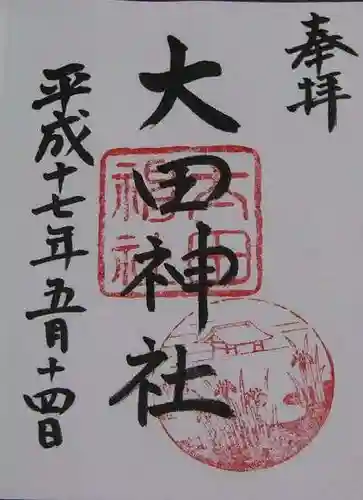 奉拝
大田神社
大田神社
平成十七年五月十四日